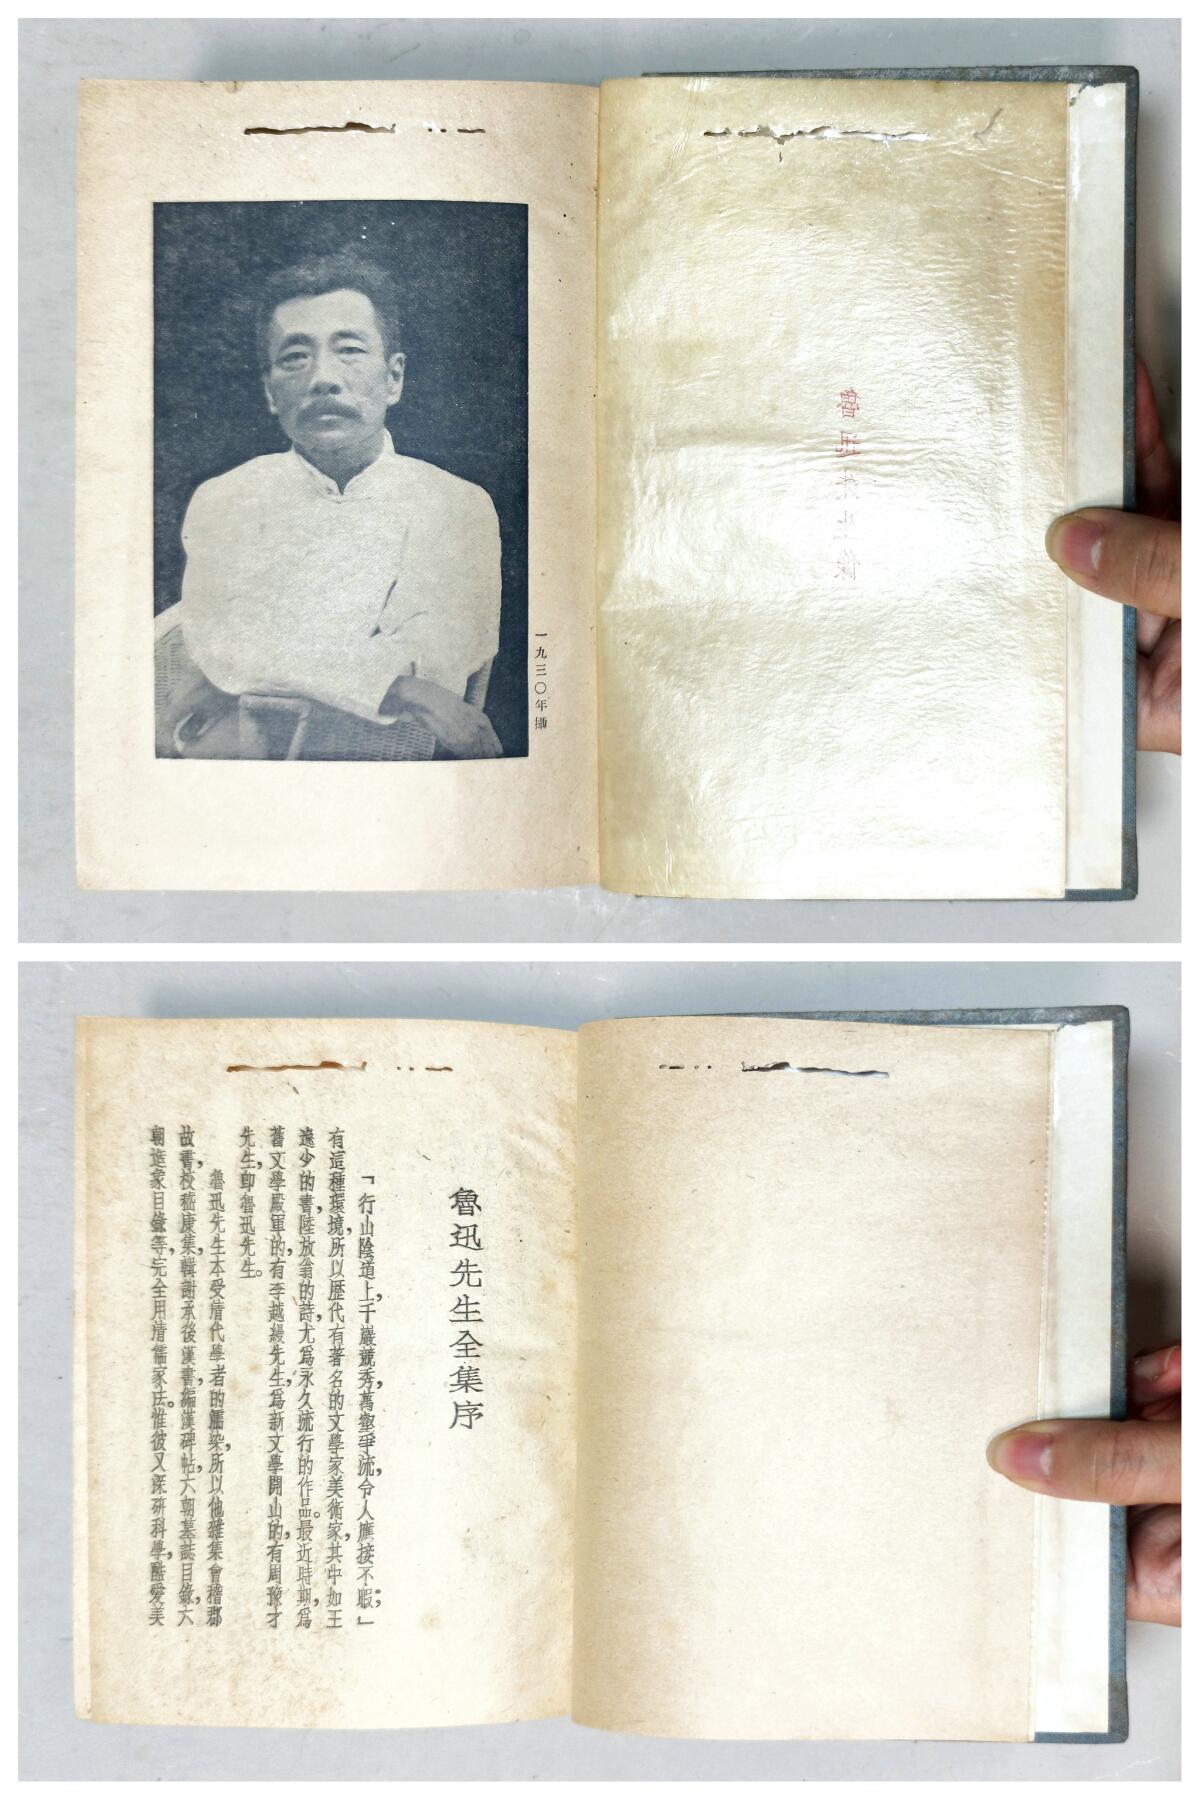 魯迅先生像
一九三〇年攝
魯迅先生全集序
「行山陰道上，千巖競秀，萬壑爭流，令人應接不暇；」
有這種環境，所以歷代有著名的文學家美術家，其中如王
逸少的書，陸放翁的詩，尤爲永久流行的作品。最近時期，爲
舊文學殿軍的，有李越縵先生，爲新文學開山的，有周豫才
先生，卽魯迅先生。
魯迅先生本受清代學者的濡染，所以他雜集會稽郡
故書，校嵇康集，輯謝承後漢書，編漢碑帖，六朝墓誌目錄，六
朝造象目錄等，完全用清儒家法。惟彼又深研科學，酷愛美